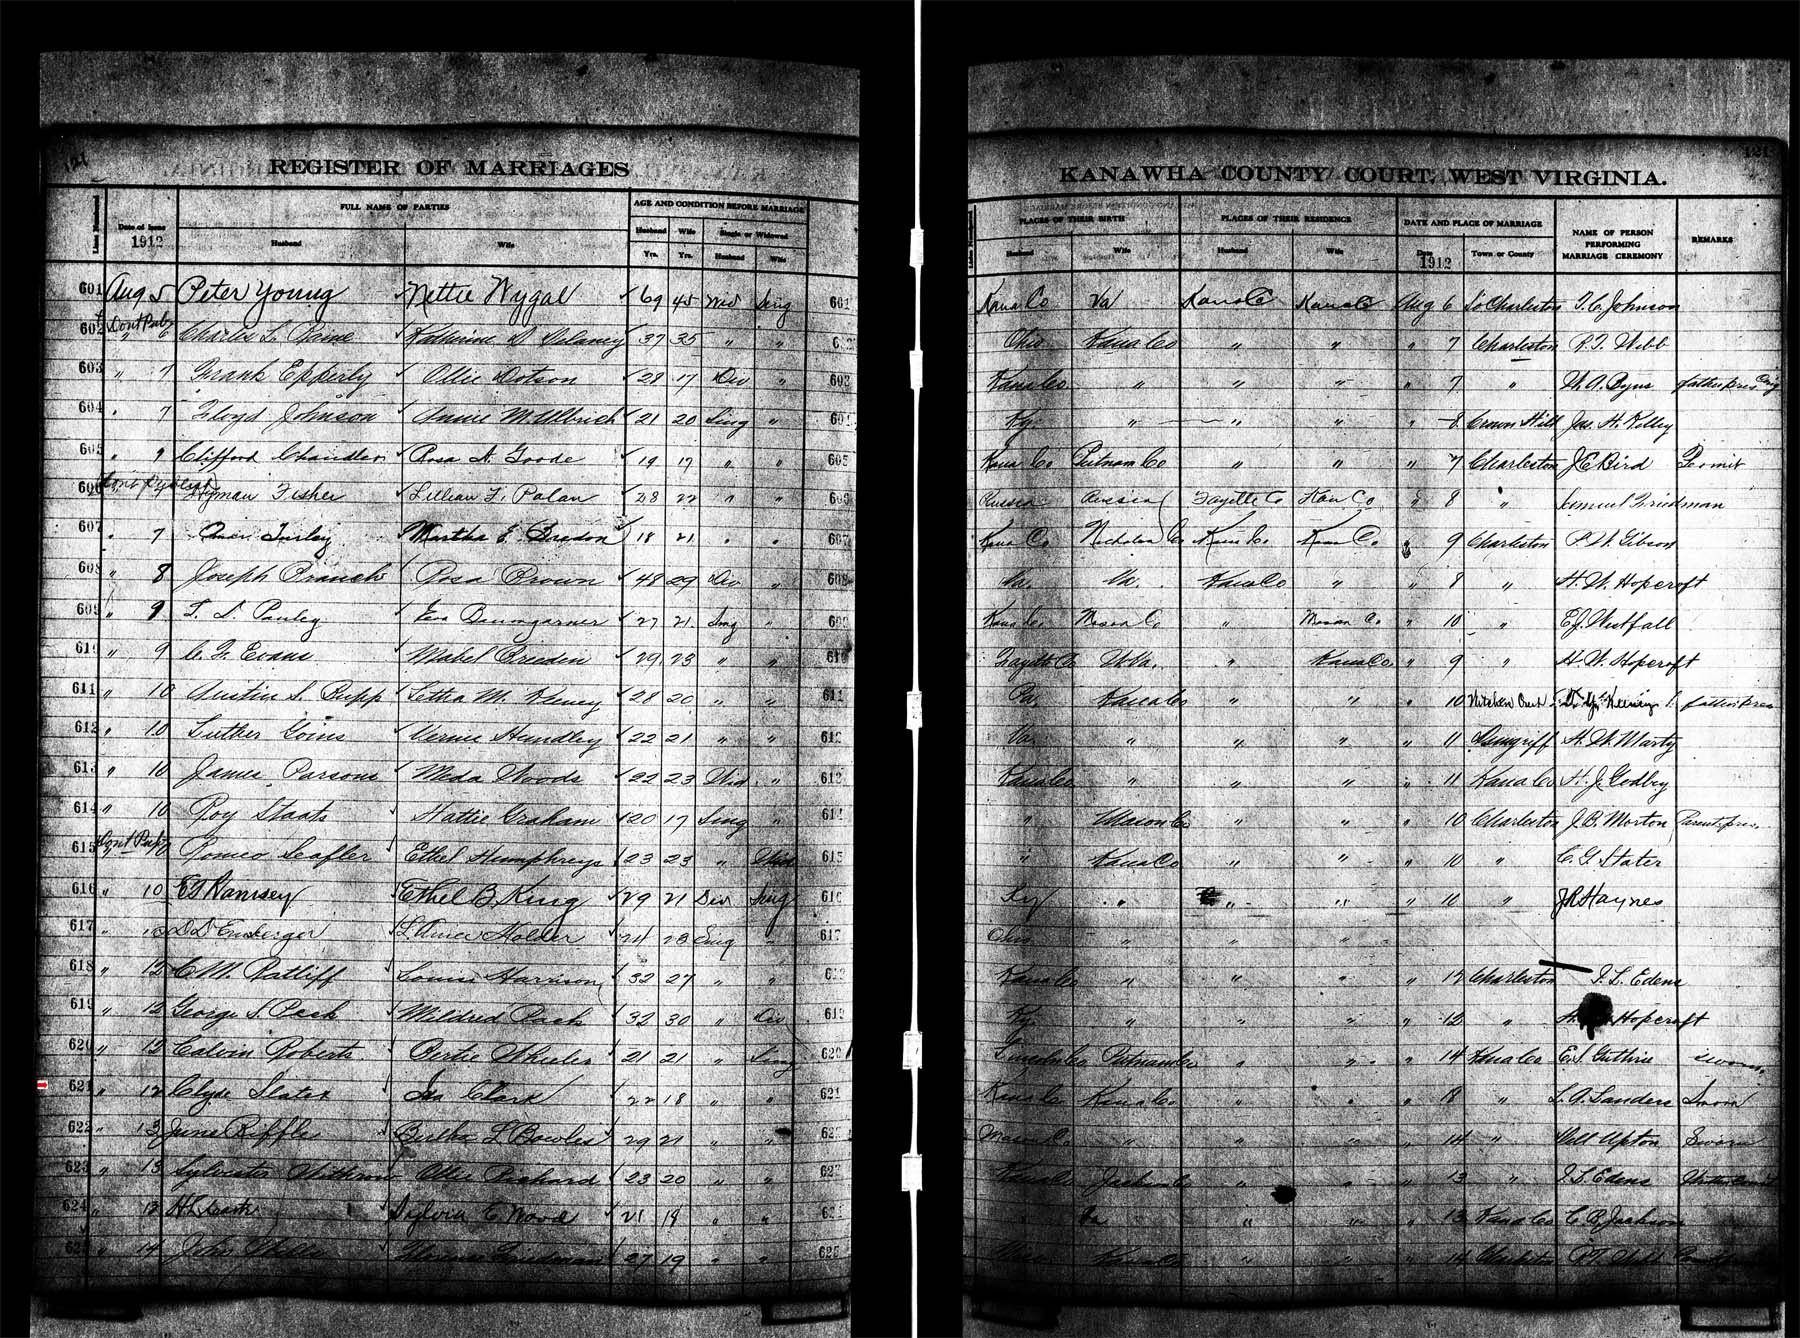 121
REGISTER OF MARRIAGES
Line Number
Date of Issue 1912
FULL NAME OF PARTIES
Husband Wife
AGE AND CONDITION BEFORE MARRIAGE
Husband Wife Single or Widowed
Yrs. Yrs. Husband Wife
601 Aug 5 Peter Young Nettie Wygal 69 45 Wid Sing 601
Dont Pub
602 " 6 Charles L. Katherine D Delaney 37 35 " " 602
603 " 7 Frank Epperly Ollie Dotson 28 17 Div " 603
604 " 7 Floyd Johnson Annie M. Ulbrich 21 20 Sing " 604
605 " 7 Clifford Chandler Rosa A. Goode 19 17 " " 605
606 " 7 Hyman Fisher Lillian F. Polan 28 22 " " 606
607 " 7 Omer Turley Martha E. 18 21 " " 607
608 " 8 Joseph Branch Rosa Brown 48 29 Div " 608
609 " 9 T. S. Pauley Eva Baumgarner 27 21 Sing " 609
610 " 9 C. F. Evans Mabel Breeden 29 23 " " 610
611 " 10 Austin S. Rupp Letha M. Keeney 28 20 " " 611
612 " 10 Luther Goins Vernie Hundley 22 21 " " 612
613 " 10 James Parsons Meda Woods 22 23 Wid " 613
614 " 10 Roy Staats Hattie Graham 20 17 Sing " 614
Dont Pub
615 " 10 Romeo Leafler Ethel Humphreys 23 23 " Wid 615
616 " 10 Ramsey Ethel B. King 29 21 Div Sing 616
617 " 10 D D Holder 24 23 Sing " 617
618 " 12 C. M. Ratliff Louise Harrison 32 27 " " 618
619 " 12 George S. Peck Mildred Rack 32 30 " Div 619
620 " 12 Calvin Roberts Bertie Wheeler 21 21 " Sing 620
621 " 12 Clyde Slater Iva Clark 22 18 " " 621
622 " 13 June Riffle Bertha L Bowles 29 21 " " 622
623 " 13 Sylvester Witherow Ollie Pickard 23 20 " " 623
624 " 13 H L Sylvia C. Wood 21 19 " " 624
625 " 14 John Friedman 27 19 " " 625
121
KANAWHA COUNTY COURT, WEST VIRGINIA.
Line Number
PLACES OF THEIR BIRTH PLACES OF THEIR RESIDENCE DATE AND PLACE OF MARRIAGE NAME OF PERSON PERFORMING MARRIAGE CEREMONY REMARKS
Husband Wife Husband Wife Date 1912 Town or County
Kana Co Va Kana Co Kana Co Aug 6 So Charleston T. C. Johnson
Ohio Kana Co " " " 7 Charleston R. T. Webb
Kana Co. " " " " 7 " W. A. Byus father pres
Ky. " " " 8 Crown Hill Jas. H. Kelley
Kana Co Putnam Co " " " 7 Charleston J. E. Bird
Russia Russia Fayette Co Kan Co. " 8 " Samuel Friedman
Kana Co. Nicholas Co Kana Co. Kana Co. " 9 Charleston P. W. Gibson
Va. Va. Kana Co " " 8 " H. W. Hopcroft
Kana Co. Mason Co " Mason Co " 10 " E. J. Westfall
Fayette Co W.Va. " Kana Co " 9 " H. W. Hopcroft
Pa. Kana Co " " " 10 Keeney father pres
Va. " " " " 11 H. W. Marty
Kana Co " " " " 11 Kana Co H. J. Godbey
" Mason Co " " " 10 Charleston J. B. Morton Parents pres.
" Kana Co " " " 10 " C. G. Stater
Ky " " " " 10 " J R Haynes
Ohio " " "
Kana Co " " " " 12 Charleston I. L. Edens
Ky. " " " " 12 " H. Hopcroft
Lincoln Co Putnam Co " " " 14 Kana Co E. S. Guthrie Sworn
Kana Co Kana Co " " " 18 " L. A. Sanders Sworn
Mason Co. " " " " 14 " Will Upton Sworn
Kana Co Jackson Co " " " 13 " I. L. Edens
" Va " " " 13 Kana Co C. C. Jackson
Kana Co " " " 14 Charleston R. T. Webb